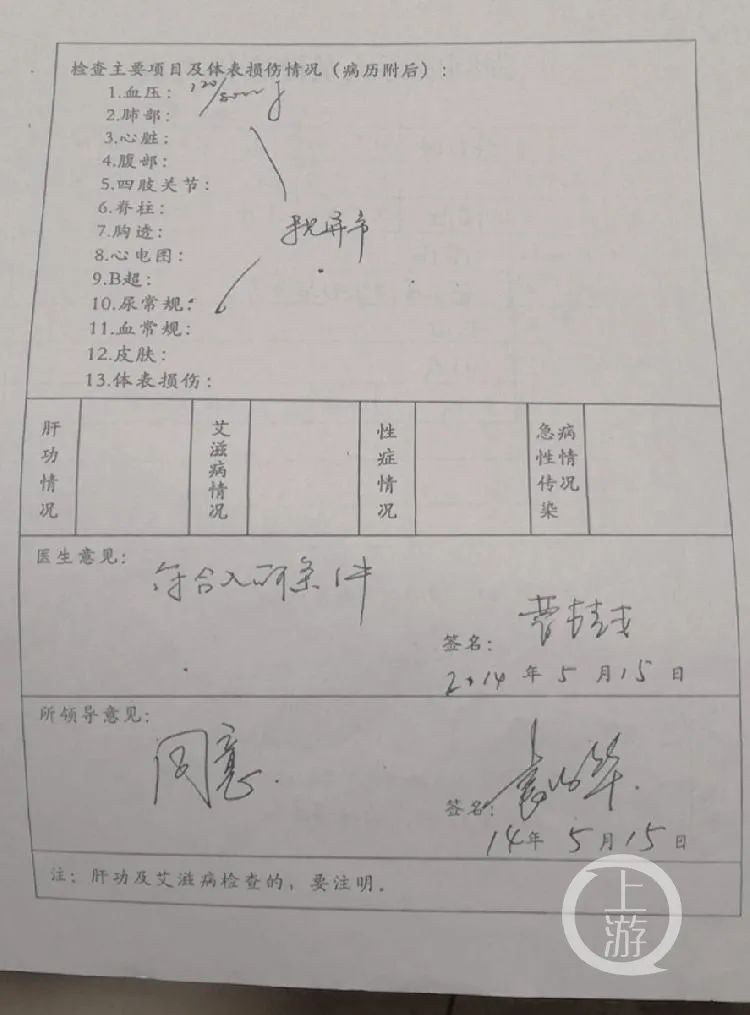 检查主要项目及体表损伤情况（病历附后）：
1.血压：120/80mmHg
2.肺部：
3.心脏：
4.腹部：
5.四肢关节：
6.脊柱：
7.胸透：
8.心电图：
9.B超：
10.尿常规：
11.血常规：
12.皮肤：
13.体表损伤：
肝功情况
艾滋病情况
性症情况
急性传染病情况
医生意见：
符合入所条件
签名：
2014年5月15日
所领导意见：
同意.
签名：
14年5月15日
注：肝功及艾滋病检查的，要注明.
上游